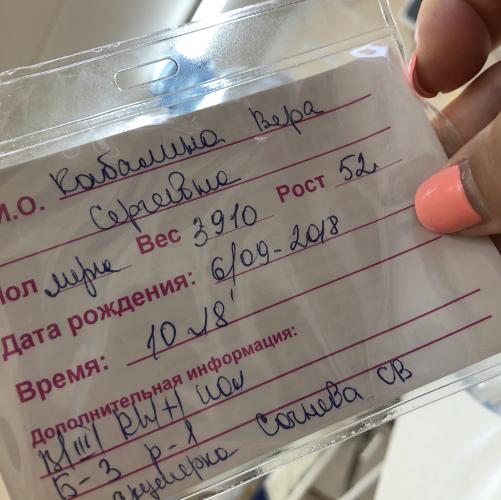 И.О. Кабалина Вера
Сергеевна
Пол Вес 3910 Рост 52
Дата рождения: 6/09-2018
Время: 10 18
Дополнительная информация:
B(III) Rh(+) пол
Б-3 р-1
акушерка Сочнева СВ